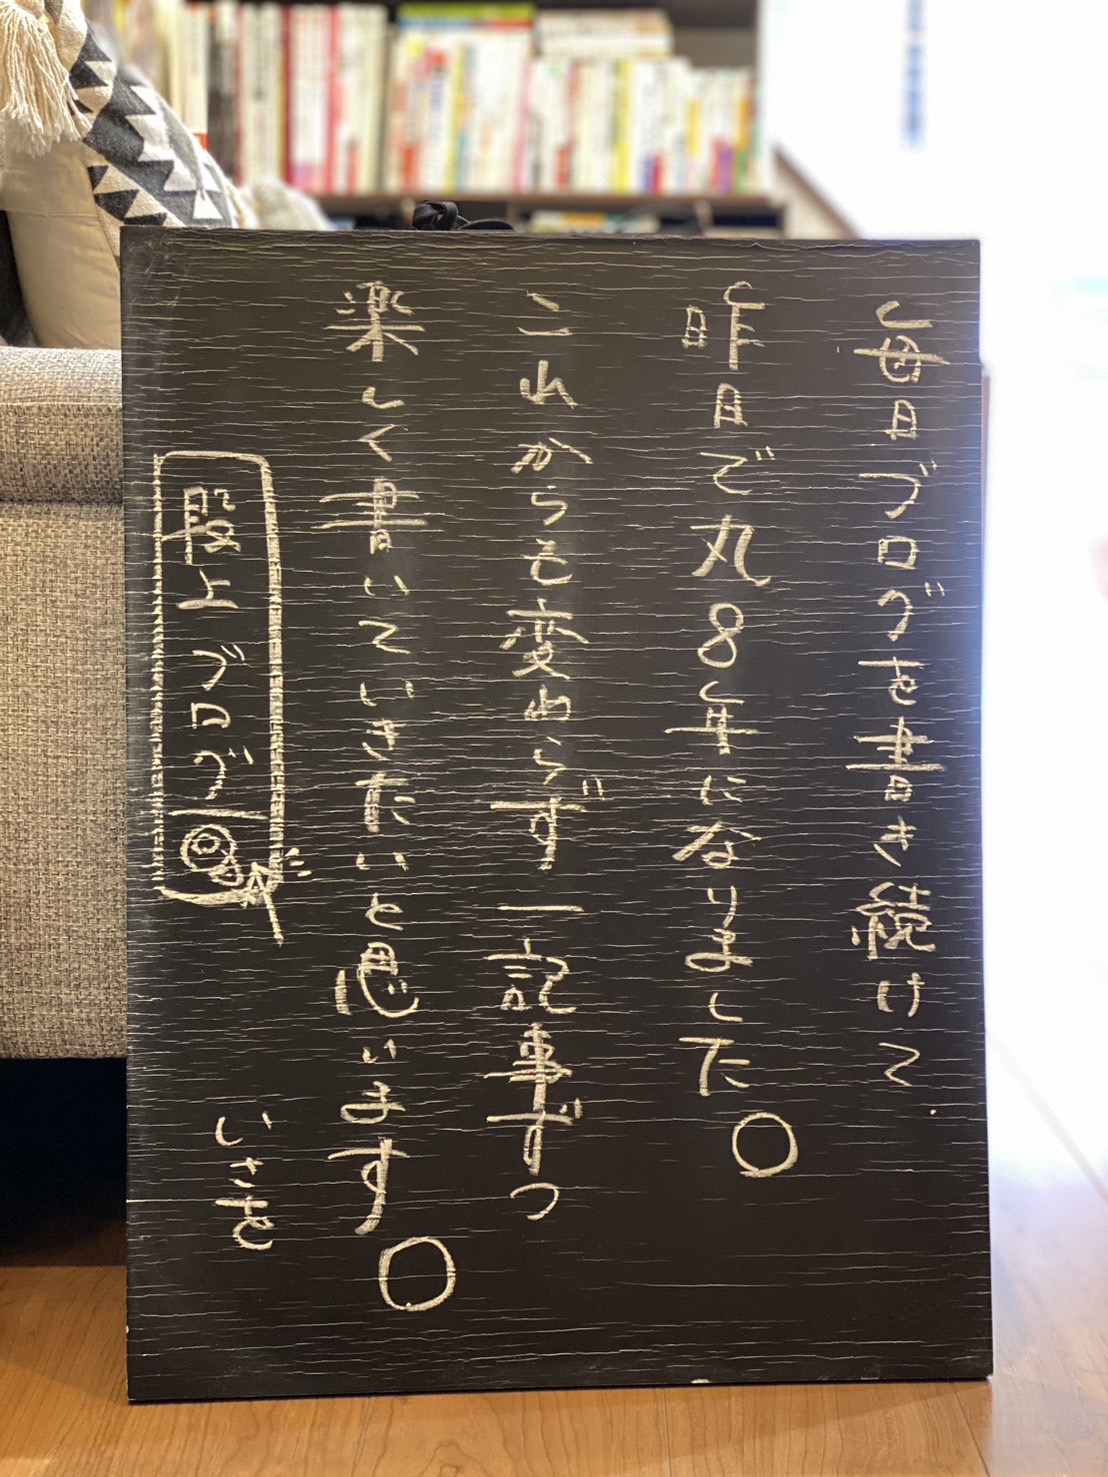 毎日ブログを書き続けて
昨日で丸8年になりました。
これからも変わらず一記事ずつ
楽しく書いていきたいと思います。
殿上ブログ
いさを